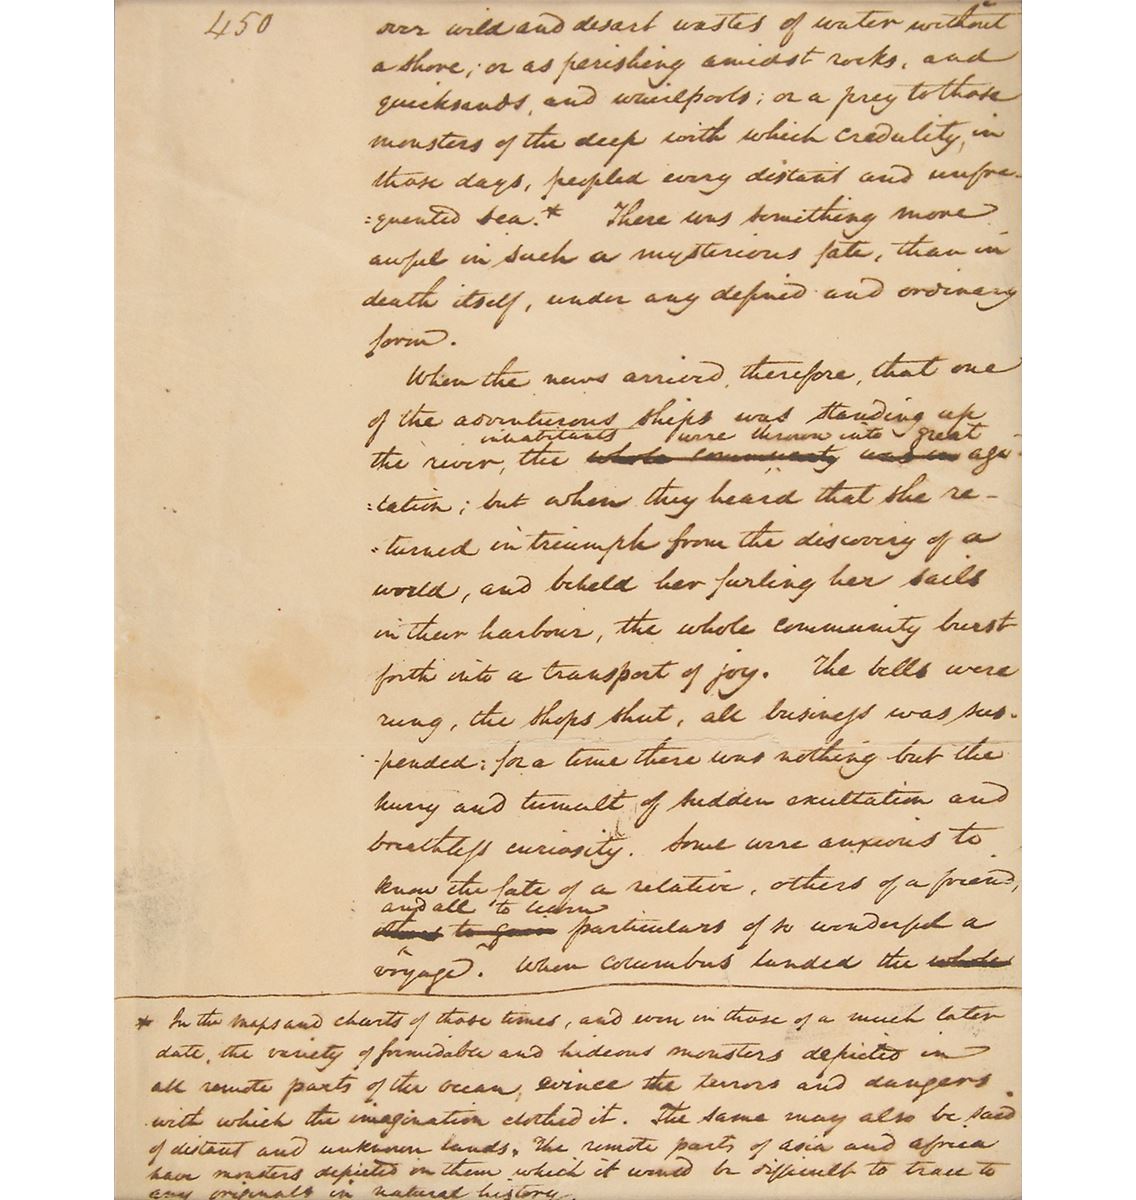 450
over wild and desart wastes of water without
a shore; or as perishing amidst rocks, and
quicksands, and whirlpools; or a prey to those
monsters of the deep with which credulity, in
those days, peopled every distant and unfre-
:quented sea.* There was something more
awful in such a mysterious fate, than in
death itself, under any defined and ordinary
form.
When the news arrived, therefore, that one
of the adventurous ships was standing up
inhabitants were thrown into great
the river, the whole community was in agi-
:tation; but when they heard that she re-
-turned in triumph from the discovery of a
world, and beheld her furling her sails
in their harbour, the whole community burst
forth into a transport of joy. The bells were
rung, the shops shut, all business was sus-
-pended: for a time there was nothing but the
hurry and tumult of sudden exultation and
breathless curiosity. Some were anxious to
know the fate of a relative, others of a friend,
and all to learn
others to gain particulars of so wonderful a
voyage. When Columbus landed the whole
* In the maps and charts of those times, and even in those of a much later
date, the variety of formidable and hideous monsters depicted in
all remote parts of the ocean, evince the terrors and dangers
with which the imagination clothed it. The same may also be said
of distant and unknown lands. The remote parts of asia and africa
have monsters depicted on them which it would be difficult to trace to
any originals in natural history.